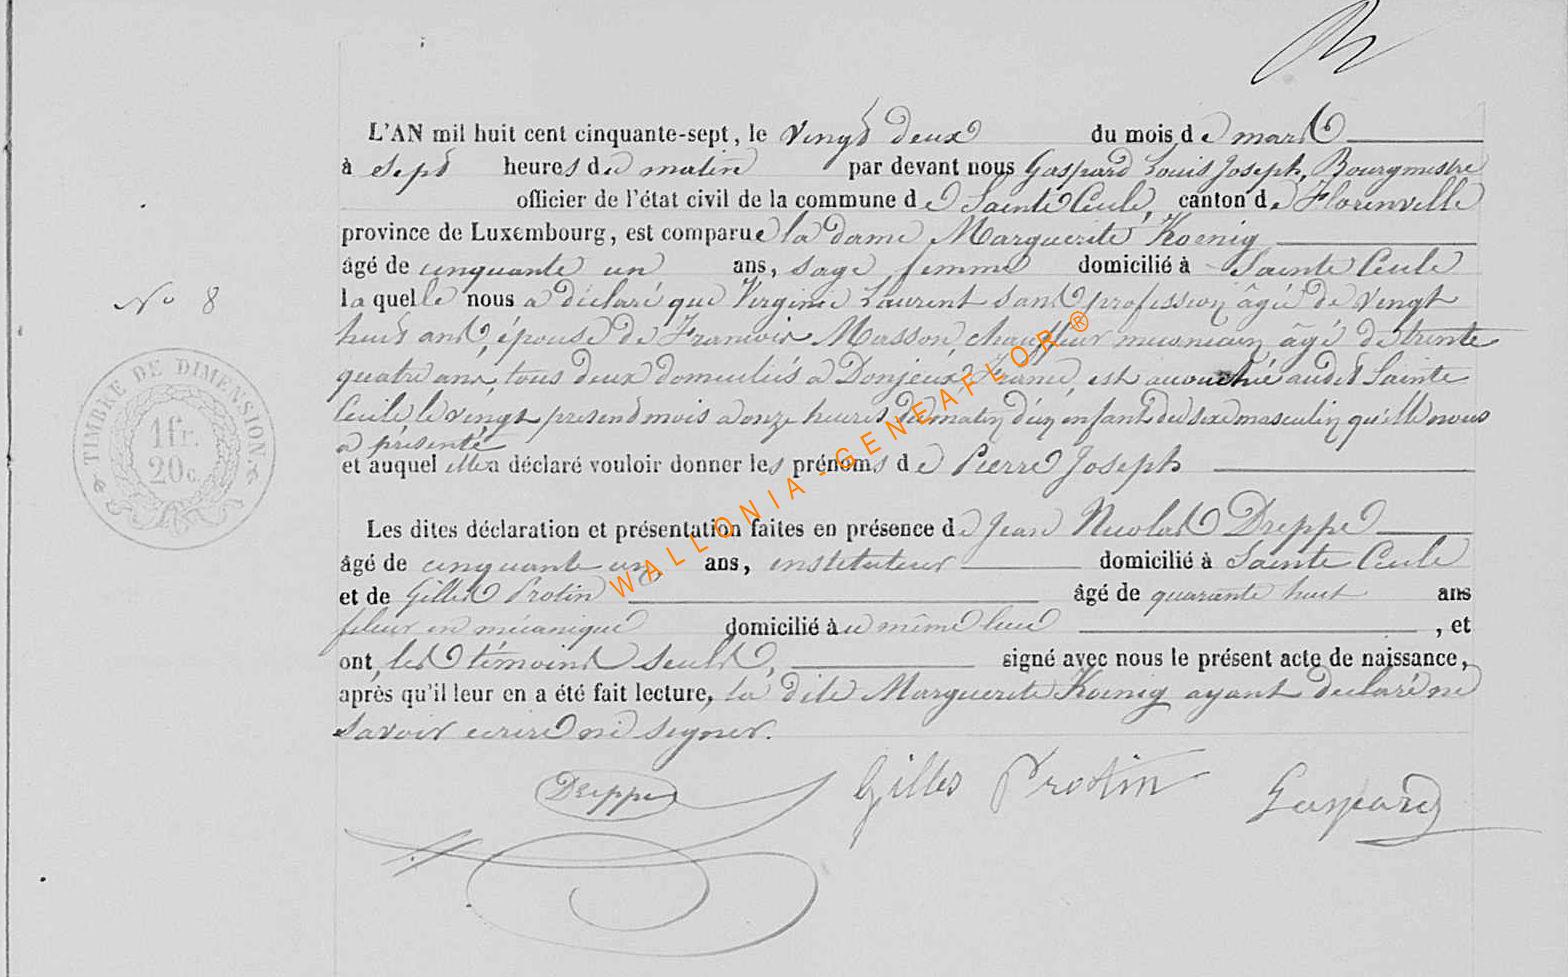 L'AN mil huit cent cinquante-sept, le vingt deux du mois de mars
à sept heures du matin par devant nous Gaspard Louis Joseph, Bourgmestre
officier de l'état civil de la commune de Sainte Cécile, canton de Florenville
province de Luxembourg, est comparue la dame Marguerite Koenig
âgé de cinquante un ans, sage femme domicilié à Sainte Cécile
No 8
laquelle nous a déclaré que Virginie Laurent sans profession âgée de vingt
huit ans, épouse de François Masson, chauffeur âgé de trente
TIMBRE DE DIMENSION.
1fr.
20c.
quatre ans, tous deux domiciliés à Donjeux, France, est accouchée audit Sainte
Cécile le vingt présent mois à onze heures du matin d'un enfant du sexe masculin qu'elle nous
a présenté
et auquel elle a déclaré vouloir donner les prénoms de Pierre Joseph
Les dites déclaration et présentation faites en présence de Jean Nicolas Dreppe
âgé de cinquante un ans, instituteur domicilié à Sainte Cécile
et de Gilles Protin âgé de quarante huit ans
fileur en mécanique domicilié au même lieu , et
ont, les témoins seuls, signé avec nous le présent acte de naissance,
après qu'il leur en a été fait lecture, la dite Marguerite Koenig ayant déclaré ne
savoir écrire ni signer.
Dreppe Gilles Protin Gaspard
WALLONIA-GENEAFLOR®